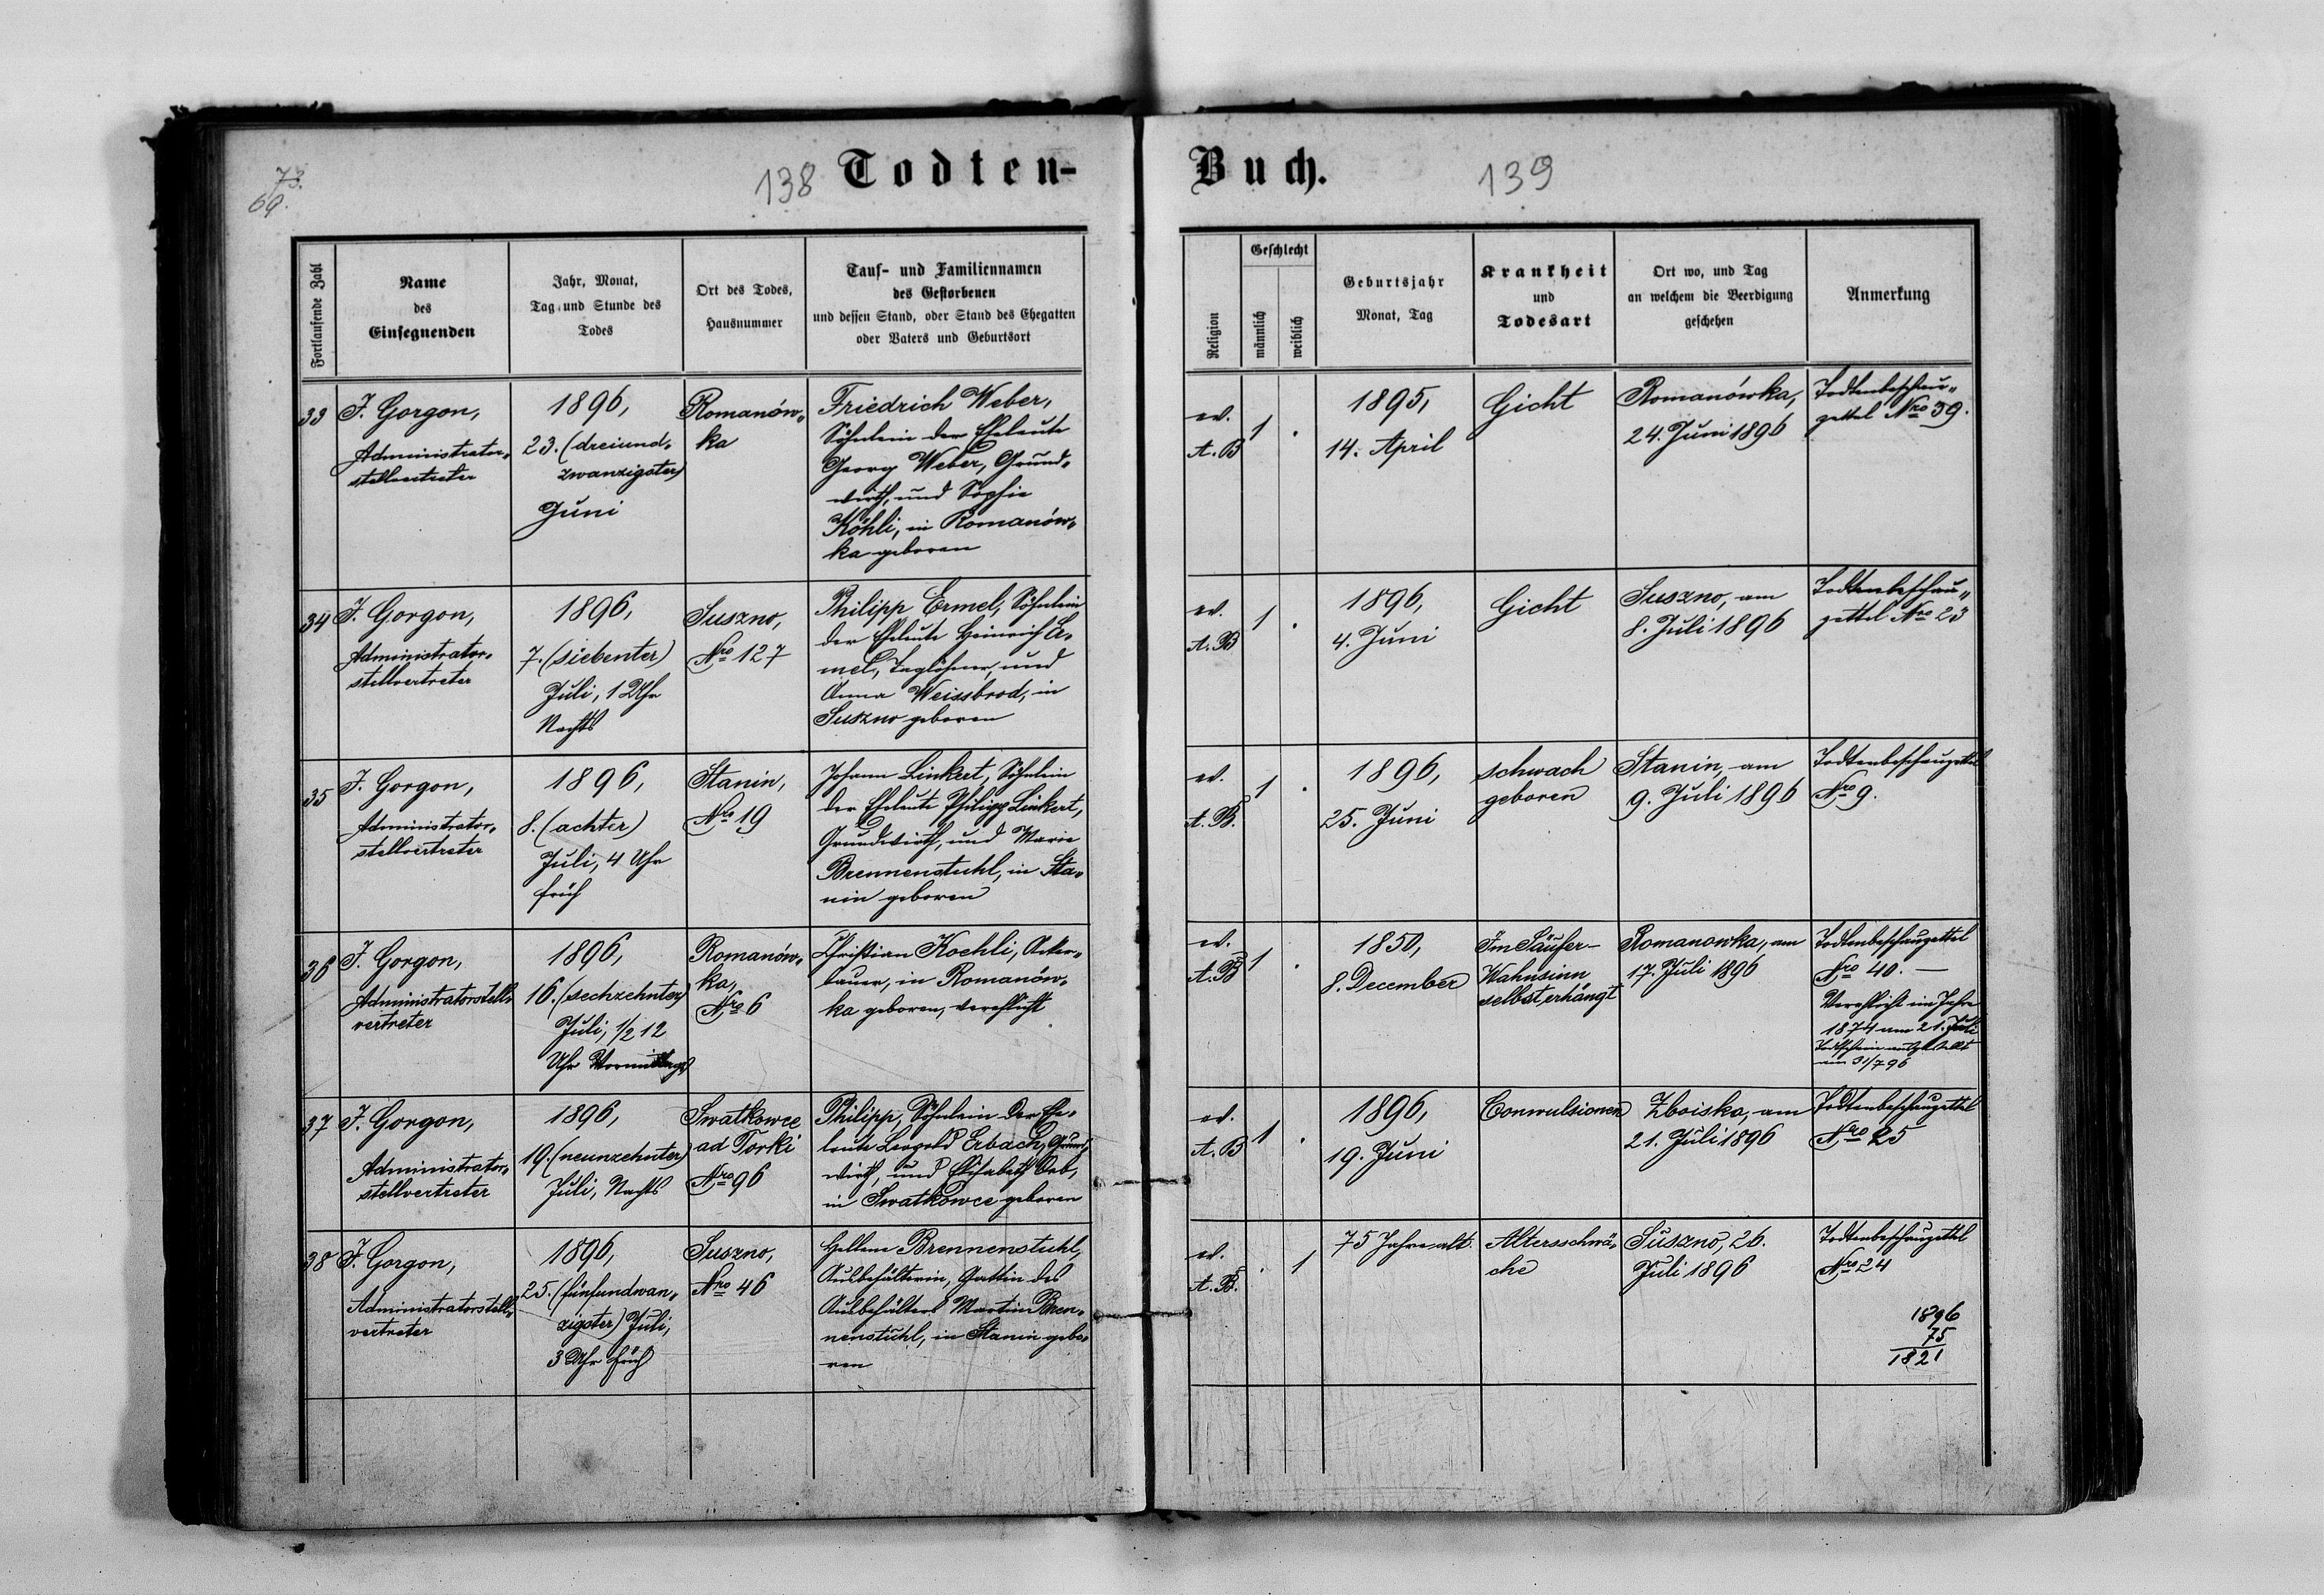 73.
69.
138 Todten-
Buch. 139
Fortlaufende Zahl
Name
des
Einsegnenden
Jahr, Monat,
Tag und Stunde des
Todes
Ort des Todes,
Hausnummer
Tauf- und Familiennamen
des Gestorbenen
und dessen Stand, oder Stand des Ehegatten
oder Vaters und Geburtsort
Religion
Geschlecht
männlich
weiblich
Geburtsjahr
Monat, Tag
Krankheit
und
Todesart
Ort wo, und Tag
an welchem die Beerdigung
geschehen
Anmerkung
33
J. Gorgon,
Administrator-
stellvertreter
1896,
23. (dreiund-
zwanzigster)
Juni
Romanów-
ka
Friedrich Weber,
Söhnlein der Eheleute
Georg Weber, Grund-
wirth, und Sophie
Köhli, in Romanów-
ka geboren
ev.
A. B
1
.
1895,
14. April
Gicht
Romanówka,
24. Juni 1896
Todtenbeschau-
zettel Nro 39.
34
J. Gorgon,
Administrator-
stellvertreter
1896,
7. (siebenter)
Juli, 1 Uhr
Nachts
Suszno,
Nro 127
Philipp Ermel, Söhnlein
der Eheleute Heinrich Er-
mel, Taglöhner, und
Anna Weissbrod, in
Suszno geboren
ev.
A. B
1
.
1896,
4. Juni
Gicht
Suszno, am
8. Juli 1896
Todtenbeschau-
zettel Nro 23
35
J. Gorgon,
Administrator-
stellvertreter
1896,
8. (achter)
Juli, 4 Uhr
früh
Stanin,
Nro 19
Johann Linkert, Söhnlein
der Eheleute Philipp Linkert,
Grundwirth, und Marie
Brennenstuhl, in Sta-
nin geboren
ev.
A. B.
1
.
1896,
25. Juni
schwach
geboren
Stanin, am
9. Juli 1896
Todtenbeschauzettel
Nro 9.
36
J. Gorgon,
Administratorstell-
vertreter
1896,
16. (sechzehnter)
Juli, 1/2 12
Uhr Vormittags
Romanów-
ka,
Nro 6
Christian Koehli, Acker-
bauer, in Romanów-
ka geboren, verehlicht
ev.
A. B
1
.
1850,
8. December
Im Säufer-
Wahnsinn
selbst erhängt
Romanowka, am
17. Juli 1896
Todtenbeschauzettel
Nro 40. —
Verehlicht im Jahre
1874 am 21. Juli
Todtschein ausgestellt
am 31/7 96
37
J. Gorgon,
Administrator-
stellvertreter
1896,
19. (neunzehnter)
Juli, Nachts
Swatkowce
ad Torki
Nro 96
Philipp, Söhnlein der Ehe-
leute Leopold Erbach, Grund-
wirth, und Elisabeth Orb,
in Swatkowce geboren
ev.
A. B
1
.
1896,
19. Juni
Conwulsionen
Zboiska, am
21. Juli 1896
Todtenbeschauzettel
Nro 25
38
J. Gorgon,
Administratorstell-
vertreter
1896,
25. (fünfundwan-
zigster) Juli,
3 Uhr früh
Suszno,
Nro 46
Hellene Brennenstuhl,
Ausbehälterin, Gattin des
Ausbehälters Martin Bren-
nenstuhl, in Stanin gebo-
ren
ev.
A. B.
.
1
75 Jahre alt.
Altersschwä-
che
Suszno, 26.
Juli 1896
Todtenbeschauzettel
Nro 24
1896
75
1821